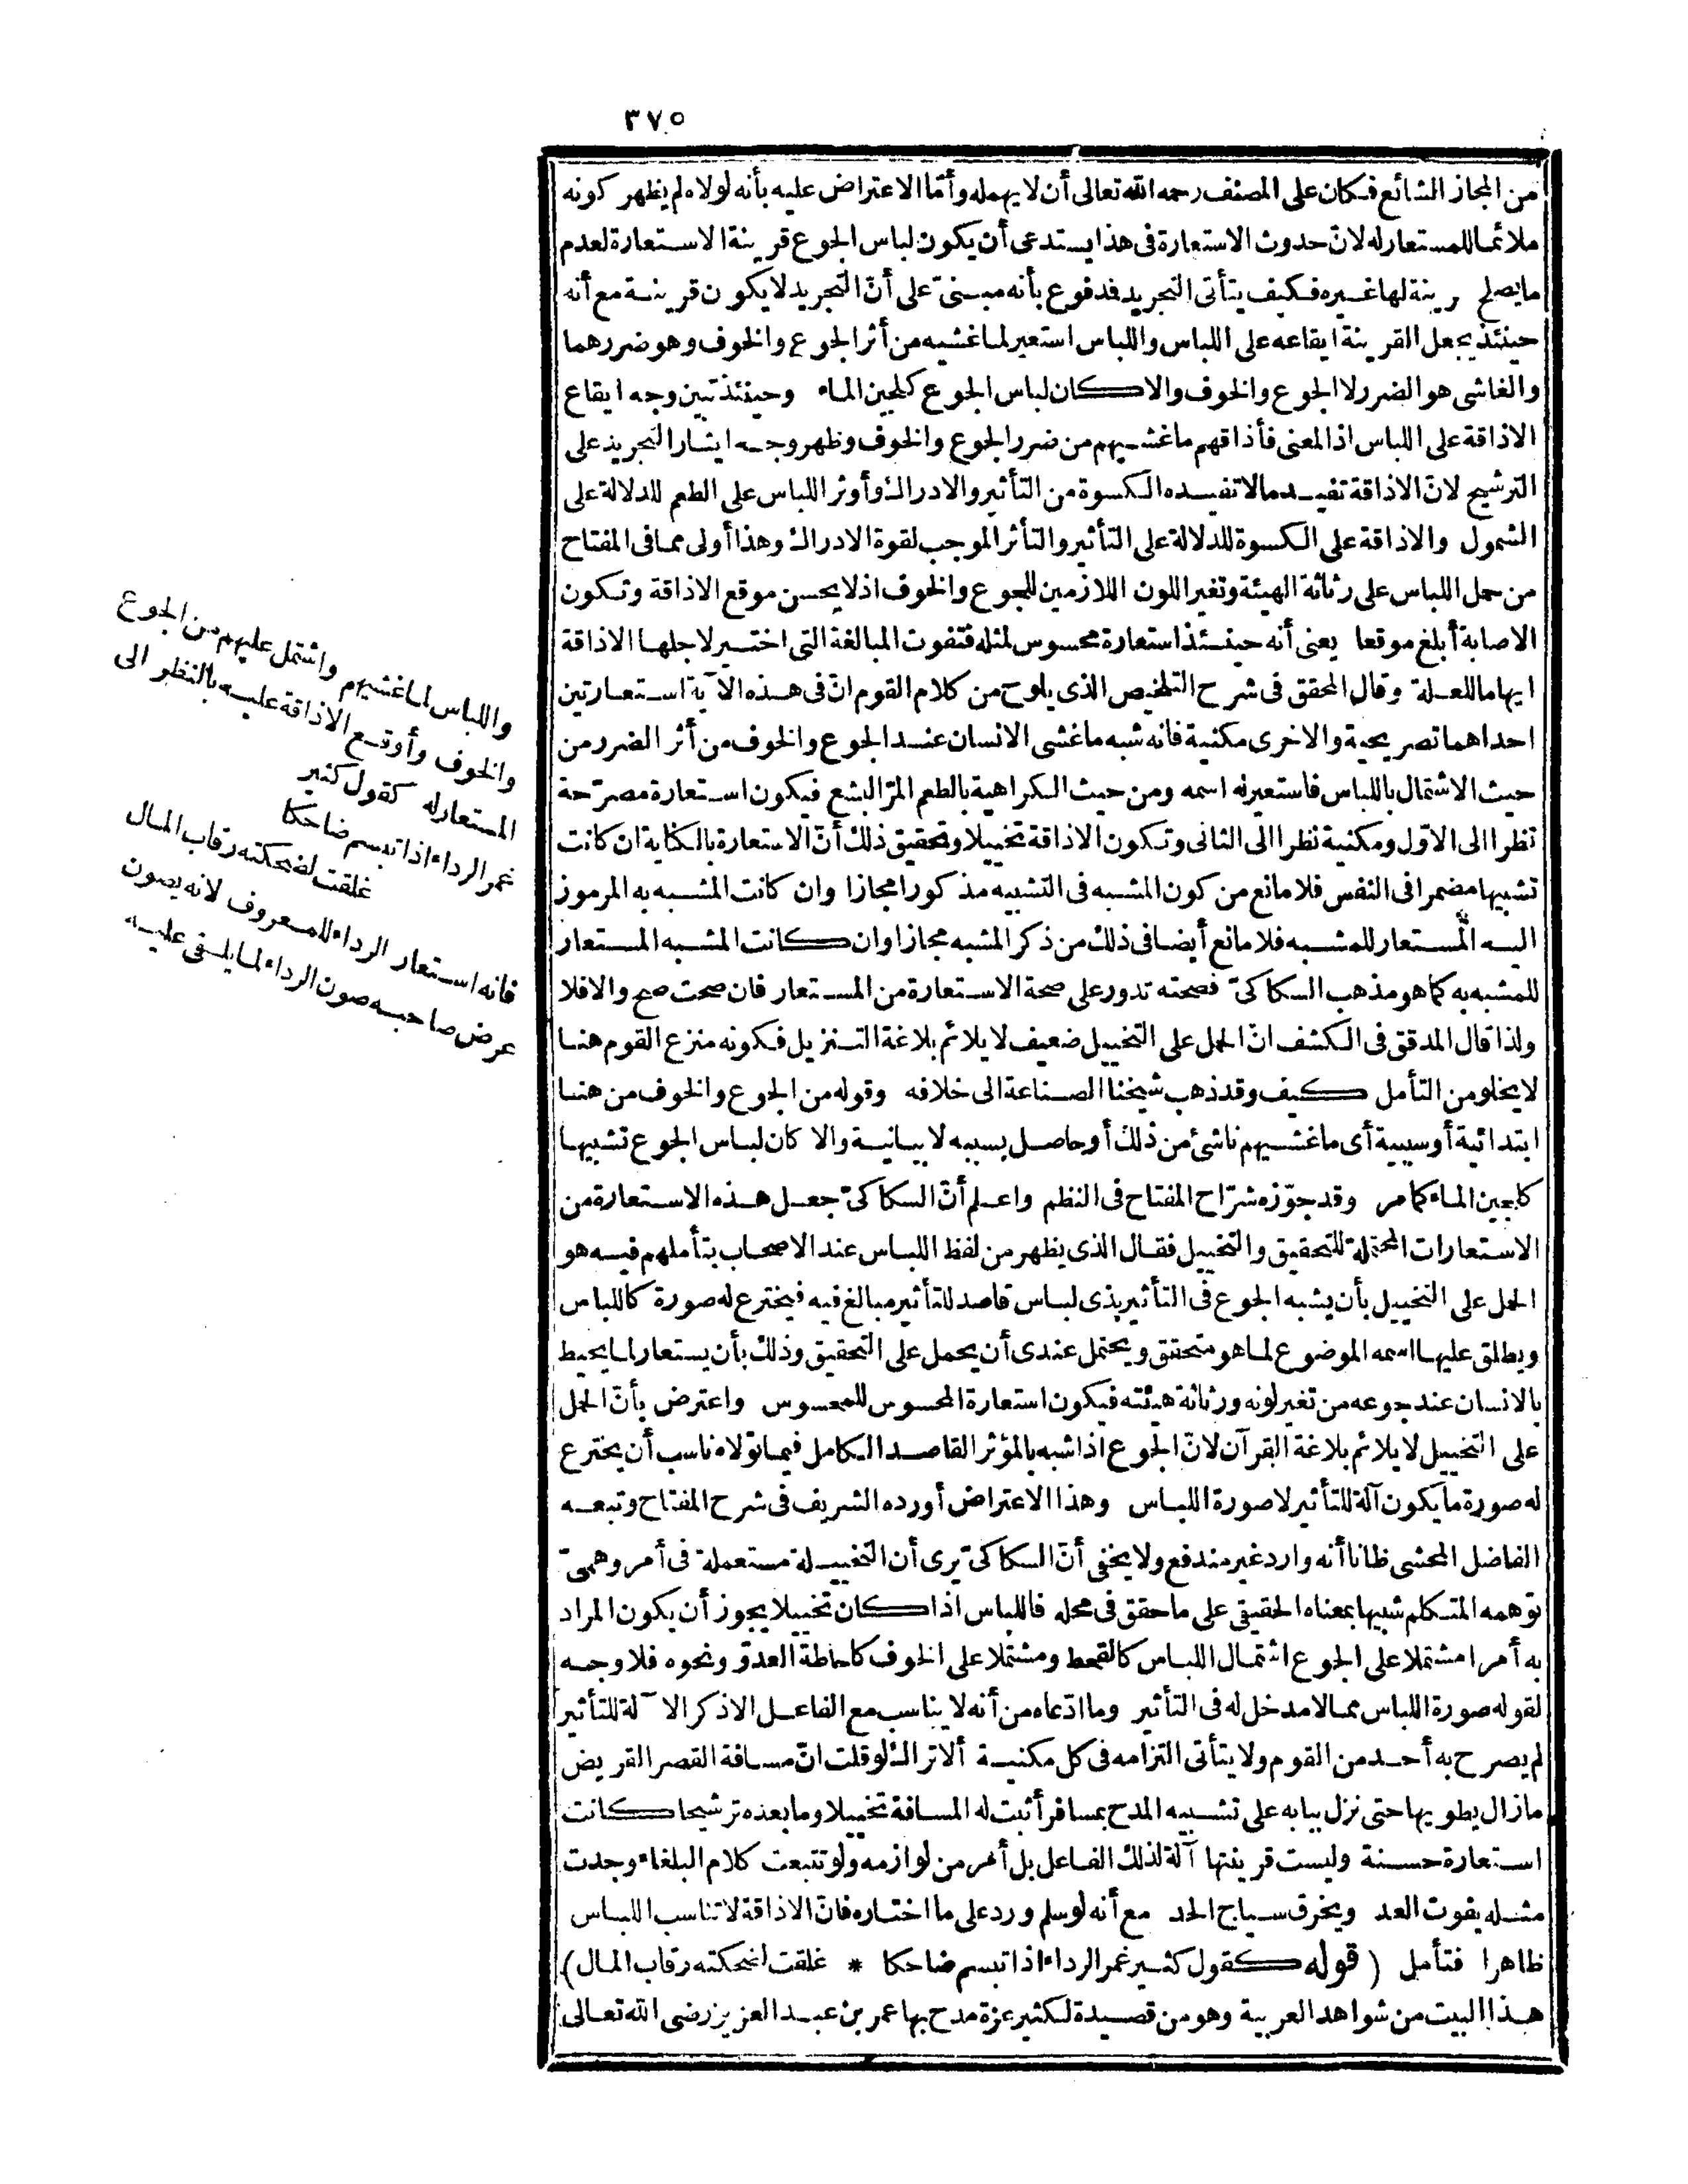 ٣٧٥
من المجاز الشائع فكان على المصنف رحمه الله تعالى أن لا يهمله وأمّا الاعتراض عليه بأنه لولاه لم يظهر كونه
ملائما للمستعار له لانّ حدوث الاستعارة فى هذا يستدعى أن يكون لباس الجوع قرينة الاستعارة لعدم
ما يصلح رينة لها غيره فكيف يتأتى التجريد فدفوع بأنه مبنىّ على أنّ التجريد لا يكون قرينة مع أنه
حينئذ يجعل القرينة ايقاعه على اللباس واللباس استعير لما غشيه من أثر الجوع والخوف وهو ضررهما
والغاشى هو الضرر لا الجوع والخوف والا كان لباس الجوع كلجين الماء وحينئذ تبين وجه ايقاع
الاذاقة على اللباس اذ المعنى فأذاقهم ما غشيهم من ضرر الجوع والخوف وظهر وجه ايثار التجريد على
الترشيح لانّ الاذاقة تفيد ما لا تفيده الكسوة من التأثير والادراك وأوثر اللباس على الطعم للدلالة على
الشمول والاذاقة على الكسوة للدلالة على التأثير والتأثر الموجب لقوة الادراك وهذا أولى مما فى المفتاح
من حمل اللباس على رثاثة الهيئة وتغير اللون اللازمين للجوع والخوف اذ لا يحسن موقع الاذاقة وتكون
الاصابة أبلغ موقعا يعنى أنه حينئذ استعارة محسوس لمثله فتفوت المبالغة التى اختير لاجلها الاذاقة
ايهاما للعلة وقال المحقق فى شرح التلخيص الذى يلوح من كلام القوم انّ فى هذه الآية استعارتين
احداهما تصريحية والاخرى مكنية فانه شبه ما غشى الانسان عند الجوع والخوف من أثر الضرر من
حيث الاشتمال باللباس فاستعير له اسمه ومن حيث الكراهية بالطعم المرّ البشع فيكون استعارة مصرّحة
نظرا الى الاوّل ومكنية نظرا الى الثانى وتكون الاذاقة تخييلا وتحقيق ذلك أنّ الاستعارة بالكناية ان كانت
تشبيها مضمرا فى النفس فلا مانع من كون المشبه فى التشبيه مذكورا مجازا وان كانت المشبه به المرموز
اليه المستعار للمشبه فلا مانع أيضا فى ذلك من ذكر المشبه مجازا وان كانت المشبه المستعار
للمشبه به كما هو مذهب السكاكىّ فصحته تدور على صحة الاستعارة من المستعار فان صحت صح والا فلا
ولذا قال المدقق فى الكشف انّ الحمل على التخييل ضعيف لا يلائم بلاغة التنزيل فكونه منزع القوم هنا
لا يخلو من التأمل كيف وقد ذهب شيخنا الصناعة الى خلافه وقوله من الجوع والخوف من هنا
ابتدائية أو سببية أى ما غشيهم ناشئ من ذلك أو حاصل بسببه لا بيانية والا كان لباس الجوع تشبيها
كلجين الماء كما مر وقد جوّزه شرّاح المفتاح فى النظم واعلم أنّ السكاكىّ جعل هذه الاستعارة من
الاستعارات المحتملة للتحقيق والتخييل فقال الذى يظهر من لفظ اللباس عند الاصحاب بتأملهم فيه هو
الحمل على التخييل بأن يشبه الجوع فى التأثير بذى لباس قاصد للتأثير مبالغ فيه فيخترع له صورة كاللباس
ويطلق عليها اسمه الموضوع لما هو متحقق ويحتمل عندى أن يحمل على التحقيق وذلك بأن يستعار لما يحيط
بالانسان عند جوعه من تغير لونه ورثاثة هيئته فيكون استعارة المحسوس للمحسوس واعترض بأنّ الحمل
على التخييل لا يلائم بلاغة القرآن لانّ الجوع اذا شبه بالمؤثر القاصد الكامل فيما تولاه ناسب أن يخترع
له صورة ما يكون آلة للتأثير لا صورة اللباس وهذا الاعتراض أورده الشريف فى شرح المفتاح وتبعه
الفاضل المحشى ظانا أنه وارد غير مندفع ولا يخفى أنّ السكاكىّ يرى أن التخييلة مستعملة فى أمر وهمىّ
توهمه المتكلم شبيها بمعناه الحقيقى على ما حقق فى محله فاللباس اذا كان تخييلا يجوز أن يكون المراد
به أمرا مشتملا على الجوع اشتمال اللباس كالقحط ومشتملا على الخوف كاحاطة العدوّ ونحوه فلا وجه
لقوله صورة اللباس مما لا مدخل له فى التأثير وما ادّعاه من أنه لا يناسب مع الفاعل الا ذكر الآلة للتأثير
لم يصرح به أحد من القوم ولا يتأتى التزامه فى كل مكنية ألا تراك لو قلت انّ مسافة القصر القريض
ما زال يطويها حتى نزل ببابه على تشبيه المدح بمسافر أثبت له المسافة تخييلا وما بعده ترشيحا كانت
استعارة حسنة وليست قرينتها آلة لذلك الفاعل بل أمر من لوازمه ولو تتبعت كلام البلغاء وجدت
مثله يفوت العد ويخرق سياج الحد مع أنه لو سلم ورد على ما اختاره فانّ الاذاقة لا تناسب اللباس
ظاهرا فتأمل (قوله كقول كثير غمر الرداء اذا تبسم ضاحكا * غلقت لضحكته رقاب المال)
هذا البيت من شواهد العربية وهو من قصيدة لكثير عزة مدح بها عمر بن عبد العزيز رضى الله تعالى
واللباس لما غشيهم واشتمل عليهم من الجوع
والخوف وأوقع الاذاقة عليه بالنظر الى
المستعار له كقول كثير
غمر الرداء اذا تبسم ضاحكا
غلقت لضحكته رقاب المال
فانه استعار الرداء للمعروف لانه يصون
عرض صاحبه صون الرداء لما يلقى عليه